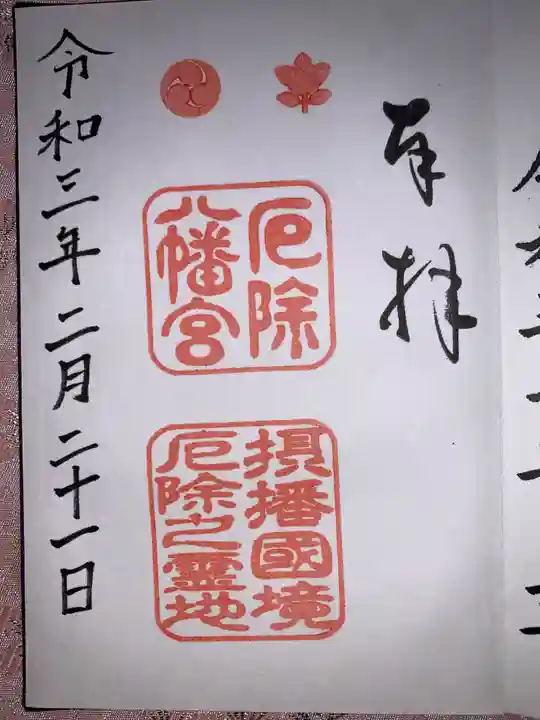 奉拝
厄除
八幡宮
摂播國境
厄除之霊地
令和三年二月二十一日